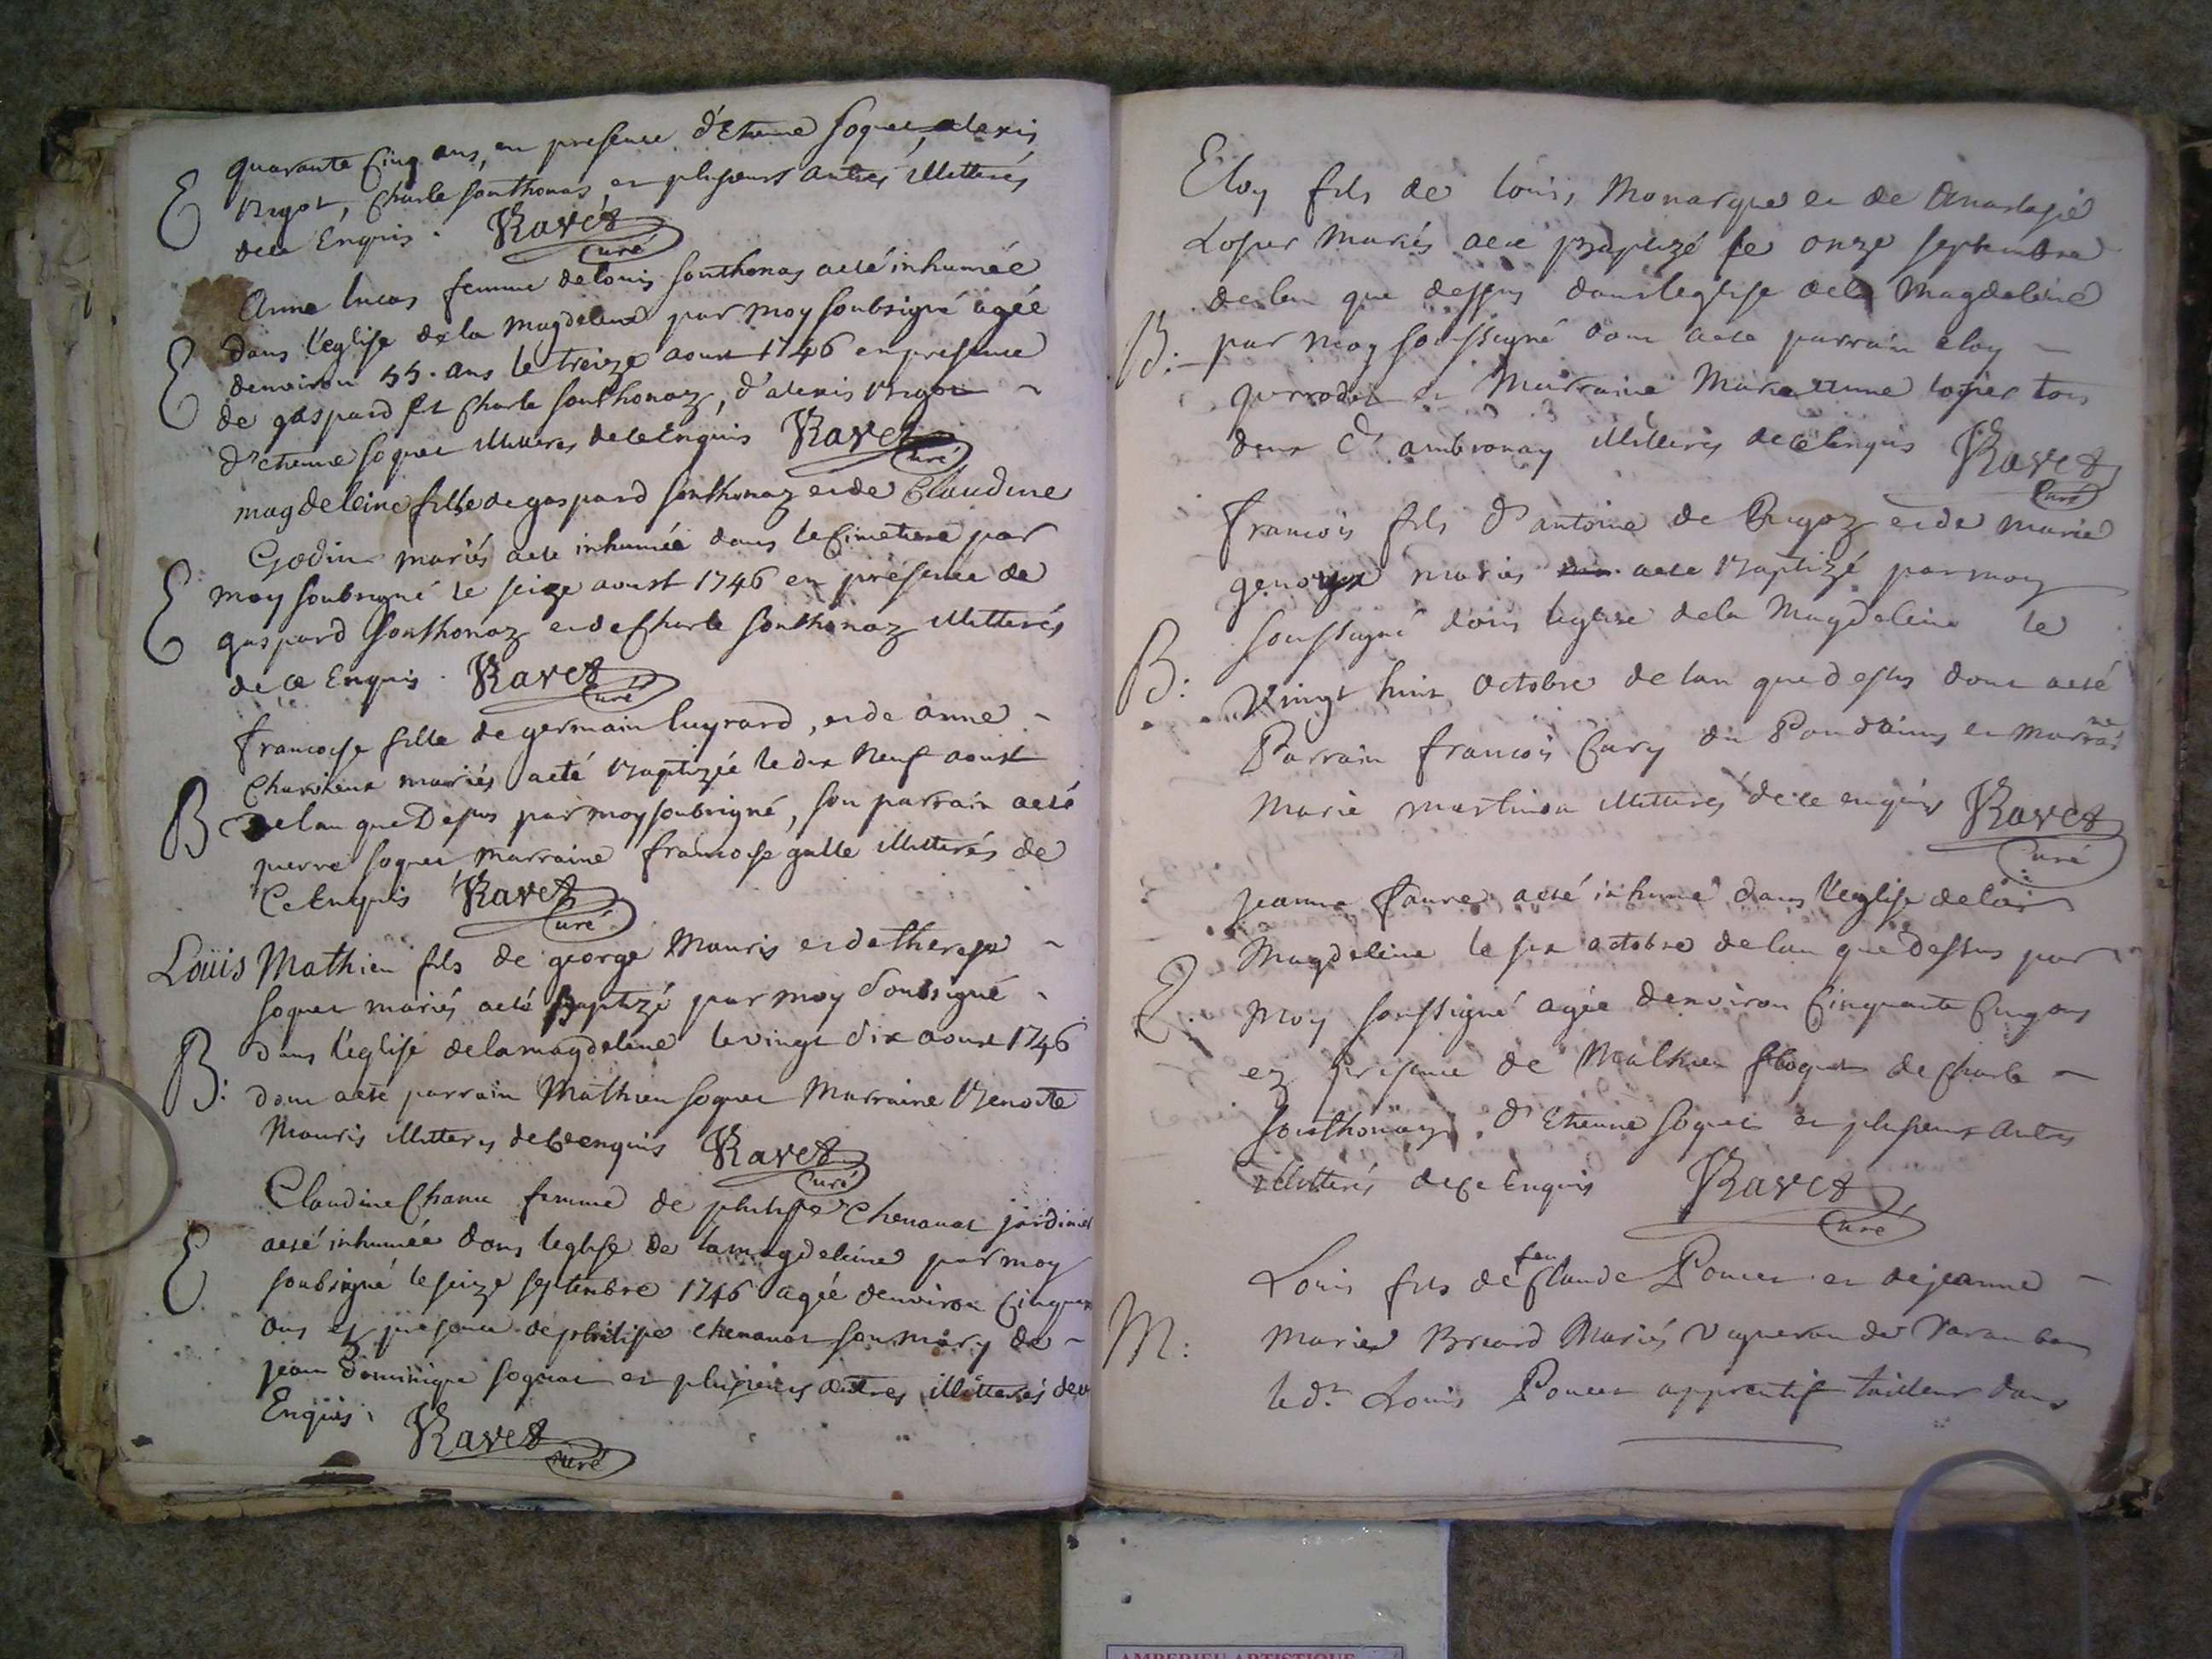 quarante cinq ans, en presence d'Etienne soquet, alexis
E
Bigot, charle sonthonas et plusieurs autres illitterés
de ce Enquis. Ravet
curé
Anne lucas femme de louis sonthonas a eté inhumée
dans l'eglise de la magdeleine par moy soubsigné agée
E
denviron 55. ans le treize aoust 1746 en presence
de gaspard et charle sonthonaz, d'alexis Bigot
d'etienne soquet illitteres de ce Enquis Ravet
curé
magdelleine fille de gaspard sonthonaz et de Claudine
Godin mariés a eté inhumée dans le cimetiere par
E
moy soubsigné le seize aoust 1746 en présence de
gaspard sonthonaz et de charle sonthonaz illitterés
de ce Enquis. Ravet
curé
francoise fille de germain luyrard, et de anne
mariés a eté Baptizée le dix neuf aoust
B
de lan que Dessus par moy soubsigné, son parrain a eté
pierre soquet marraine francoise galle illitterés de
Ce Enquis Ravet
curé
Louis Mathieu fils de george Mauris et de therese
soquet mariés a eté Baptizé par moy soubsigné
B:
dans l'eglise de la magdeleine le vingt dix aoust 1746
dont a eté parrain Mathieu soquet Marraine Benoite
Mauris illitteres de ce enquis Ravet
curé
Claudine Chanu femme de philipe Chenavat jardinier
a eté inhumée dans leglise de la magdeleine par moy
E
soubsigné le seize septembre 1746 agée denviron cinquante
ans en presence de philipe chenavat son mary de
jean Dominique soquet et plusieurs autres illitterés de ce
Enquis. Ravet
curé
Eloy fils de louis Monarque et de Anastasie
Losier mariés a eté Baptizé le onze septembre
de lan que dessus dans leglise de la Magdeleine
B:
par moy soussigné dont a eté parrain eloy
et Marraine Marie anne losier tous
deux d'ambronay illitterés de ce Enquis Ravet
curé
francois fils d'antoine de Bugoz et de marie
mariés a eté Baptizé par moy
soussigné dans leglise de la Magdeleine le
B:
Vingt huit octobre de lan que dessus dont a eté
Parrain francois Cury du Pondains et marraine
Marie martinon illitterés de ce enquis Ravet
curé
jeanne faure a eté inhumé dans l'eglise de la
Magdeleine le six octobre de lan que dessus par
E.
moy soussigné agée denviron cinquante cinq ans
en presence de Mathieu soquet de charle
sonthonaz, d'Etienne soquet et plusieurs autres
illitterés de ce Enquis Ravet
curé
Louis fils de feu claude Poncet et de jeanne
M:
Marie Briard Mariés vigneron de Varambon
led.t Louis Poncet apprentif tailleur dans
AMBERIEU ARTISTIQUE